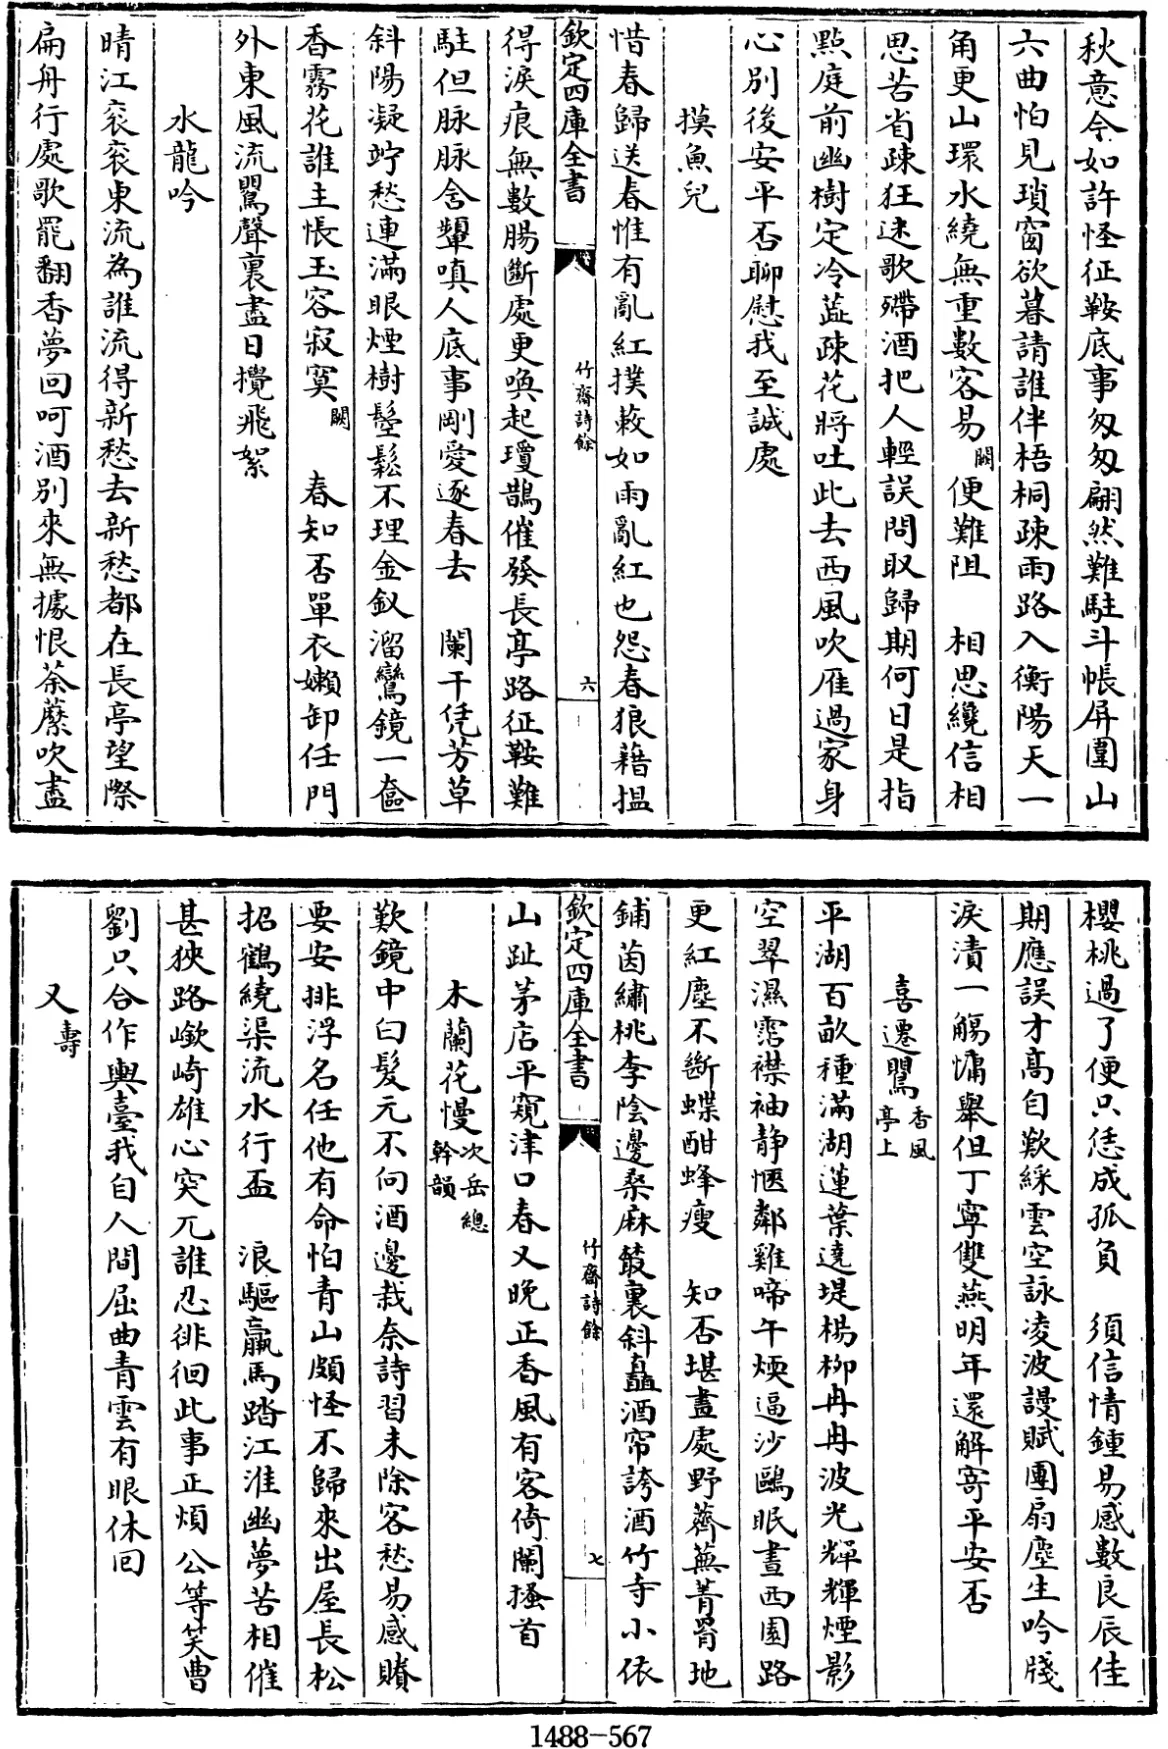 秋意令如許怪征鞍底事匆匆翩然難駐斗帳屏圍山
六曲怕見瑣窗欲暮請誰伴梧桐疎雨路入衡陽天一
角更山環水繞無重數客易闕便難阻　相思纔信相
思苦省疎狂迷歌殢酒把人輕誤問取歸期何日是指
點庭前幽樹定冷蕋疎花將吐此去西風吹雁過家身
心別後安平否聊慰我至誠處
摸魚兒
惜春歸送春惟有亂紅撲蔌如雨亂紅也怨春狼藉搵
欽定四庫全書
竹齋詩餘
六
得淚痕無數腸斷處更喚起瓊鵲催發長亭路征鞍難
駐但脉脉含顰嗔人底事剛愛逐春去　闌干凭芳草
斜陽凝竚愁連滿眼煙樹髼鬆不理金釵溜鸞鏡一奩
香霧花誰主悵玉容寂寞闕　春知否單衣嬾卸任門
外東風流鶯聲裏盡日攪飛絮
水龍吟
晴江衮衮東流為誰流得新愁去新愁都在長亭望際
扁舟行處歌罷翻香夢回呵酒別來無據恨荼䕷吹盡
櫻桃過了便只恁成孤負　須信情鍾易感數良辰佳
期應誤才高自歎綵雲空詠凌波謾賦團扇塵生吟牋
淚漬一觴慵舉但丁寧雙燕明年還解寄平安否
喜遷鶯香風亭上
平湖百畝種滿湖蓮葉遶堤楊柳冉冉波光輝輝煙影
空翠濕霑襟袖静愜鄰雞啼午煖逼沙鷗眠晝西園路
更紅塵不斷蝶酣蜂瘦　知否堪畫處野薺蕪菁罥地
鋪茵繡桃李陰邊桑麻叢裏斜矗酒帘誇酒竹寺小依
欽定四庫全書
竹齋詩餘
七
山趾茅店平窺津口春又晚正香風有客倚闌搔首
木蘭花慢次岳總幹韻
歎鏡中白髮元不向酒邊栽奈詩習未除客愁易感賸
要安排浮名任他有命怕青山頗怪不歸來出屋長松
招鶴繞渠流水行盃　浪驅羸馬踏江淮幽夢苦相催
甚狹路嶔崎雄心突兀誰忍徘徊此事正煩公等笑曹
劉只合作輿臺我自人間屈曲青雲有眼休回
又壽
1488-567